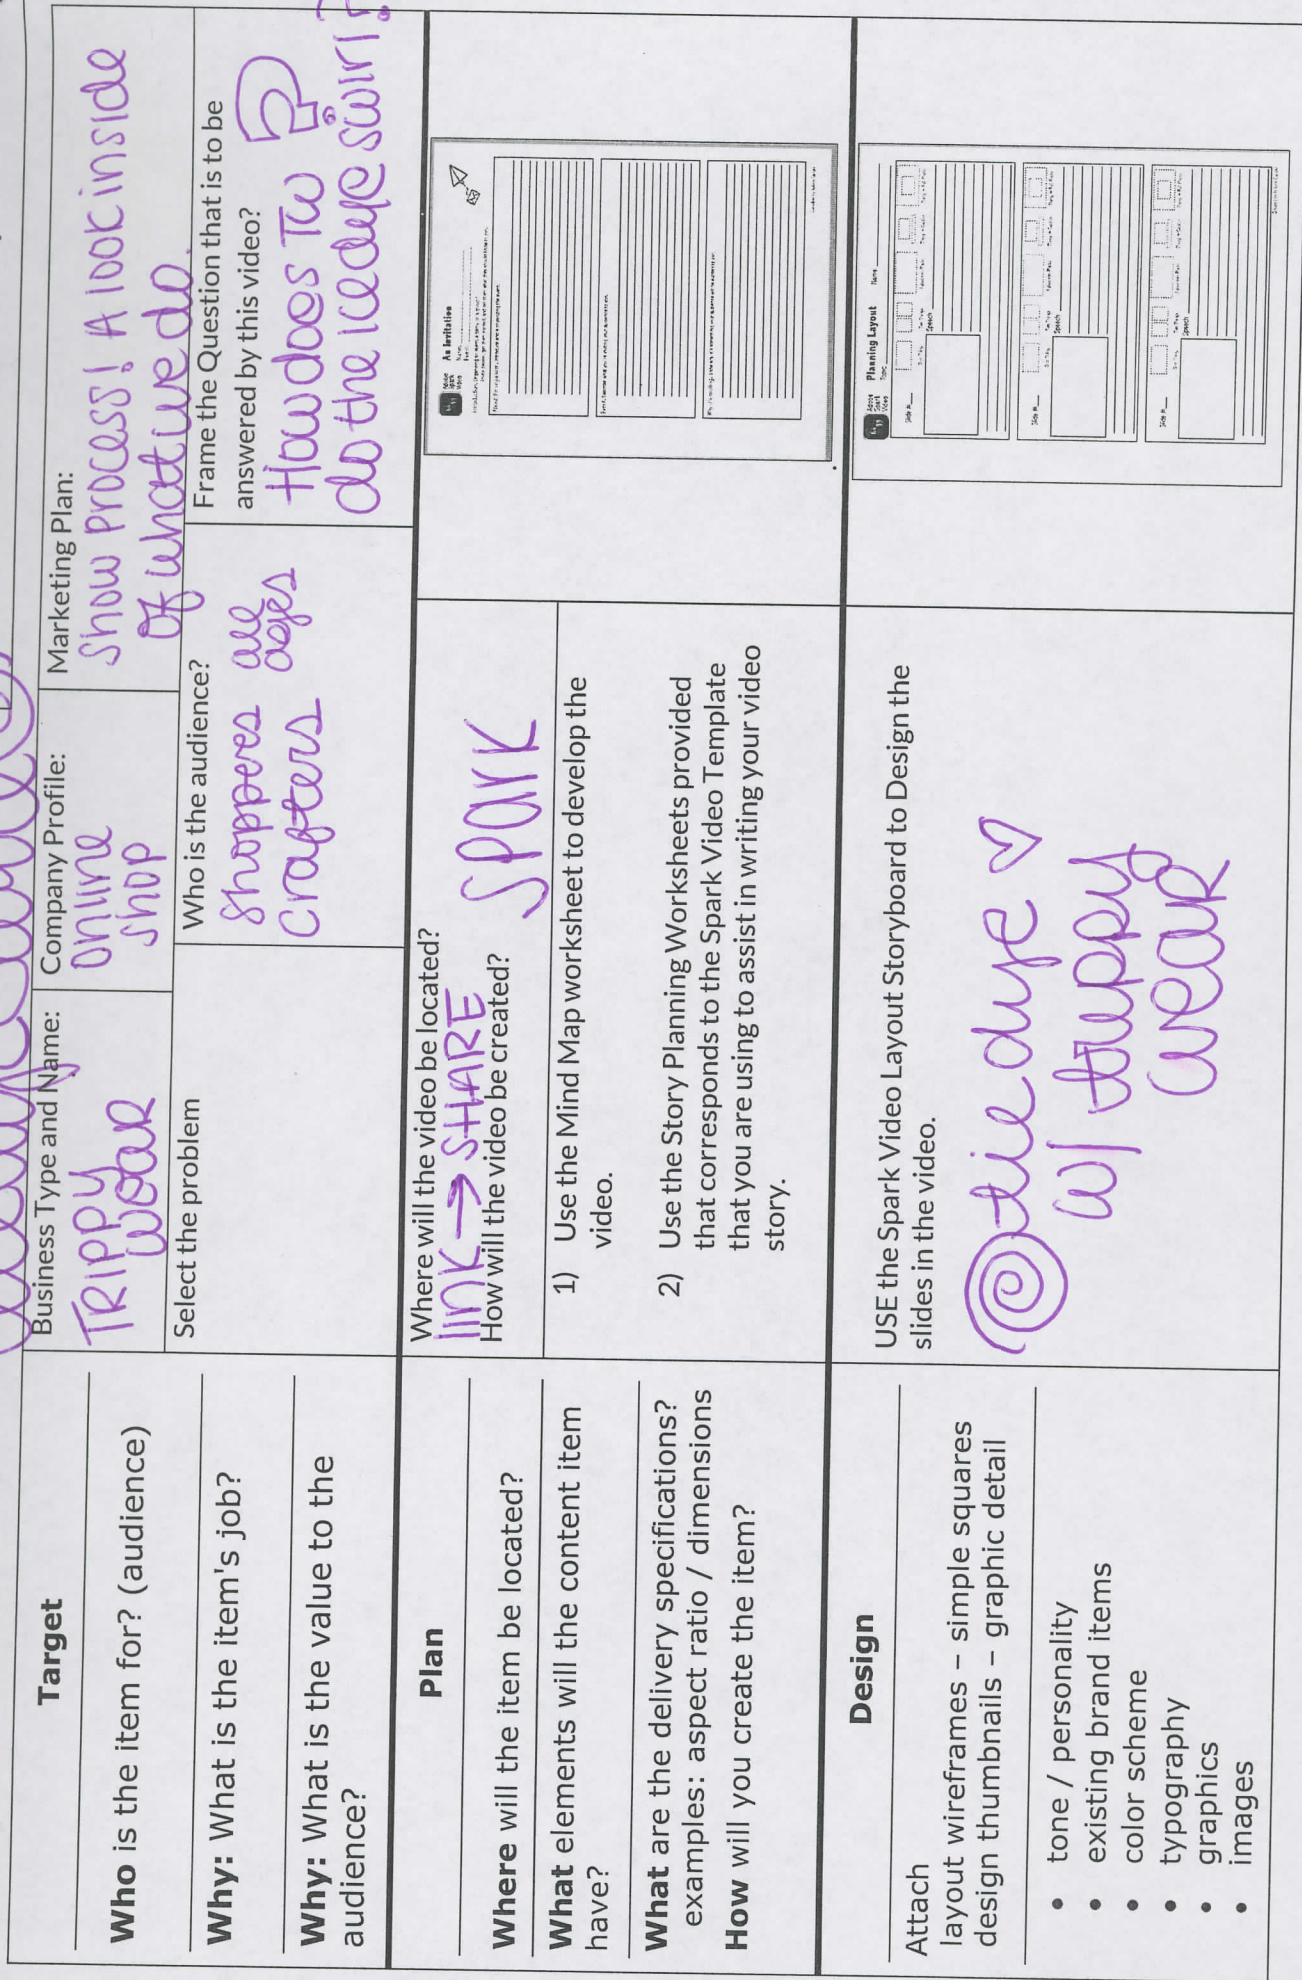 Target
Who is the item for? (audience)
Why: What is the item's job?
Why: What is the value to the
audience?
Business Type and Name:
TRIPPY
wear
Company Profile:
online
shop
Marketing Plan:
Show process! A look inside
of what we do.
Select the problem
Who is the audience?
shoppers all
ages
crafters
Frame the Question that is to be
answered by this video?
How does TW
do the ice dye swirl?
Plan
Where will the item be located?
What elements will the content item
have?
What are the delivery specifications?
examples: aspect ratio / dimensions
How will you create the item?
Where will the video be located?
link → SHARE
How will the video be created?
Spark
1) Use the Mind Map worksheet to develop the
video.
2) Use the Story Planning Worksheets provided
that corresponds to the Spark Video Template
that you are using to assist in writing your video
story.
Adobe
Spark
Video
An Invitation
Design
Attach
layout wireframes – simple squares
design thumbnails – graphic detail
• tone / personality
• existing brand items
• color scheme
• typography
• graphics
• images
USE the Spark Video Layout Storyboard to Design the
slides in the video.
tie dye ♡
w/ trippy
wear
Adobe
Spark
Video
Planning Layout
Name
Topic
Slide #
Speech
Slide #
Speech
Slide #
Speech